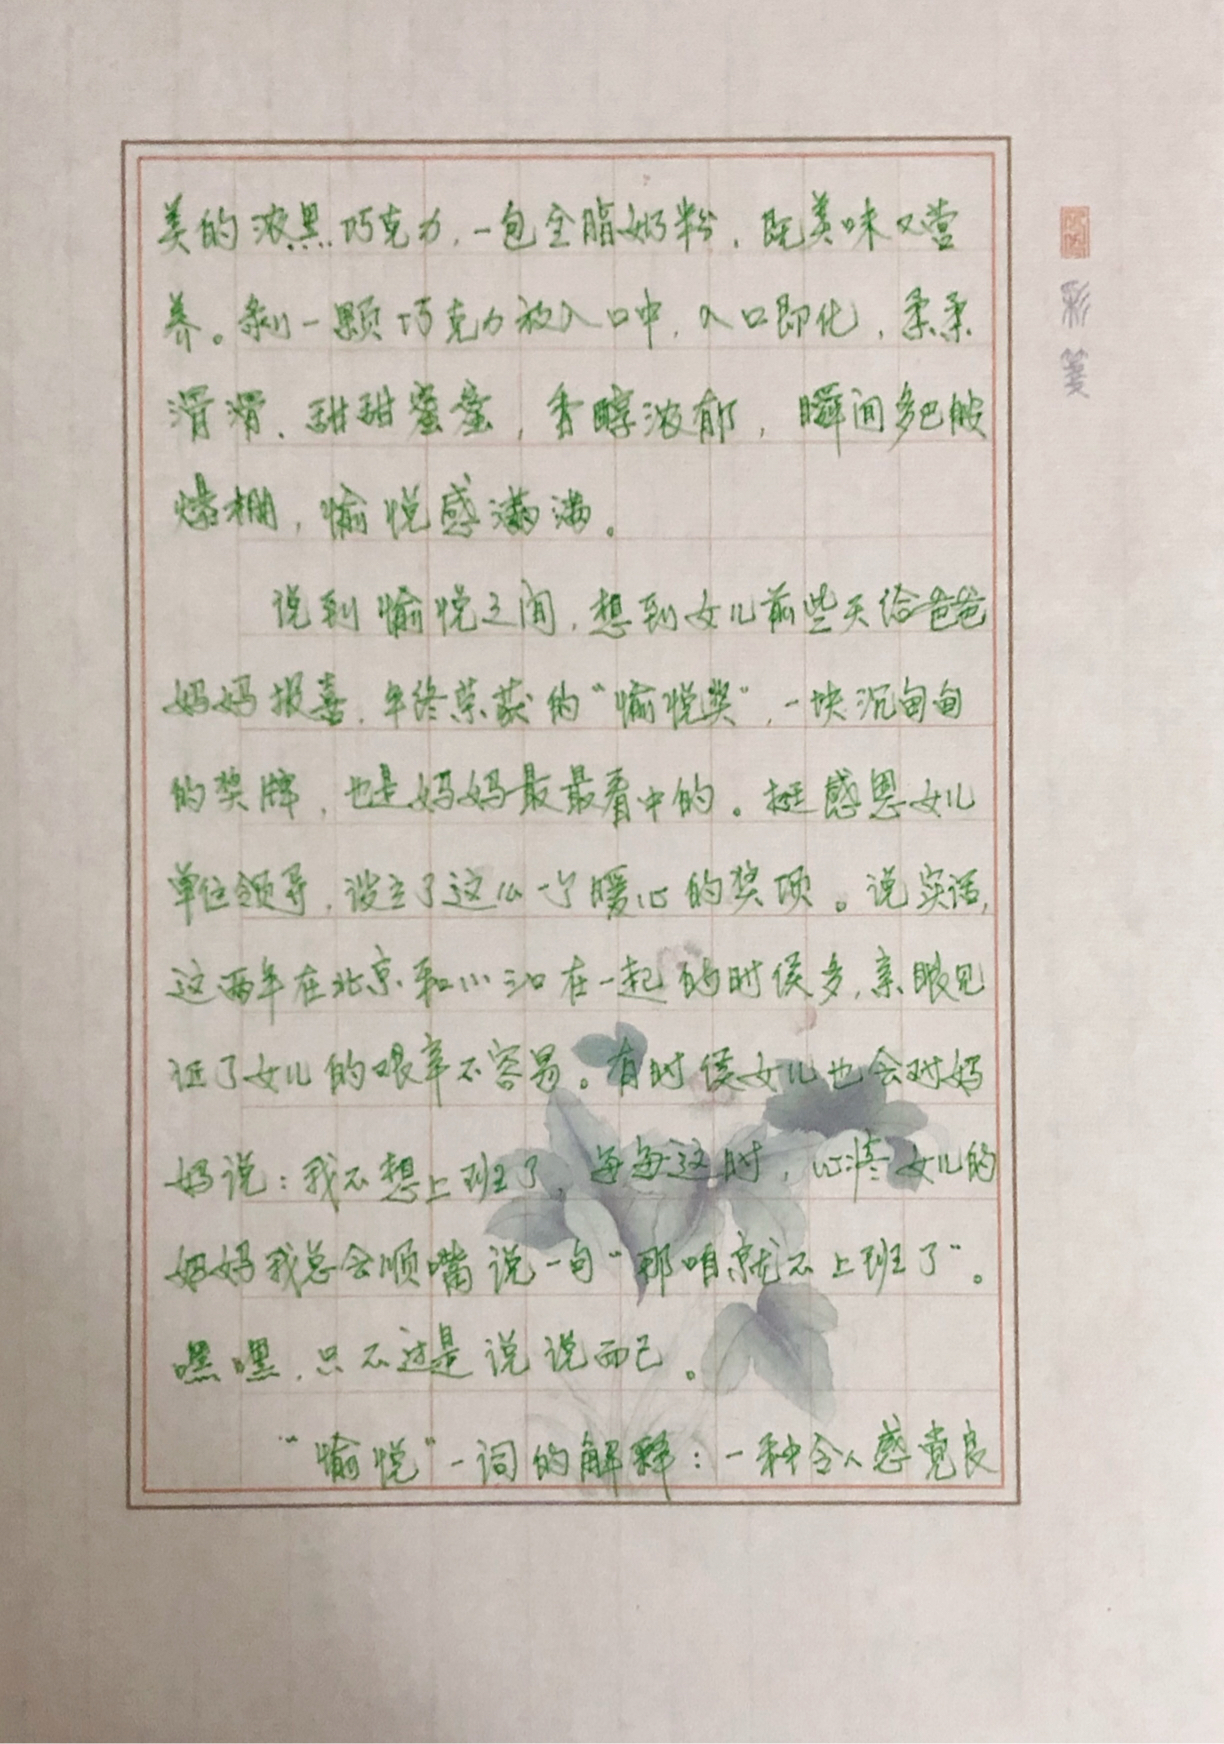 美的浓黑巧克力,一包全脂奶粉,既美味又营
养。剥一颗巧克力放入口中,入口即化,柔柔
滑滑、甜甜蜜蜜,香醇浓郁,瞬间多巴胺
爆棚,愉悦感满满。
说到愉悦之间,想到女儿前些天给爸爸
妈妈报喜,年终荣获的“愉悦奖”,一块沉甸甸
的奖牌,也是妈妈最最看中的。挺感恩女儿
单位领导,设立了这么一个暖心的奖项。说实话,
这两年在北京和小沁在一起的时侯多,亲眼见
证了女儿的艰辛不容易。有时侯女儿也会对妈
妈说:我不想上班了,每每这时,心疼女儿的
妈妈我总会顺嘴说一句“那咱就不上班了”。
嘿嘿,只不过是说说而已。
“愉悦”一词的解释:一种令人感觉良
彩笺